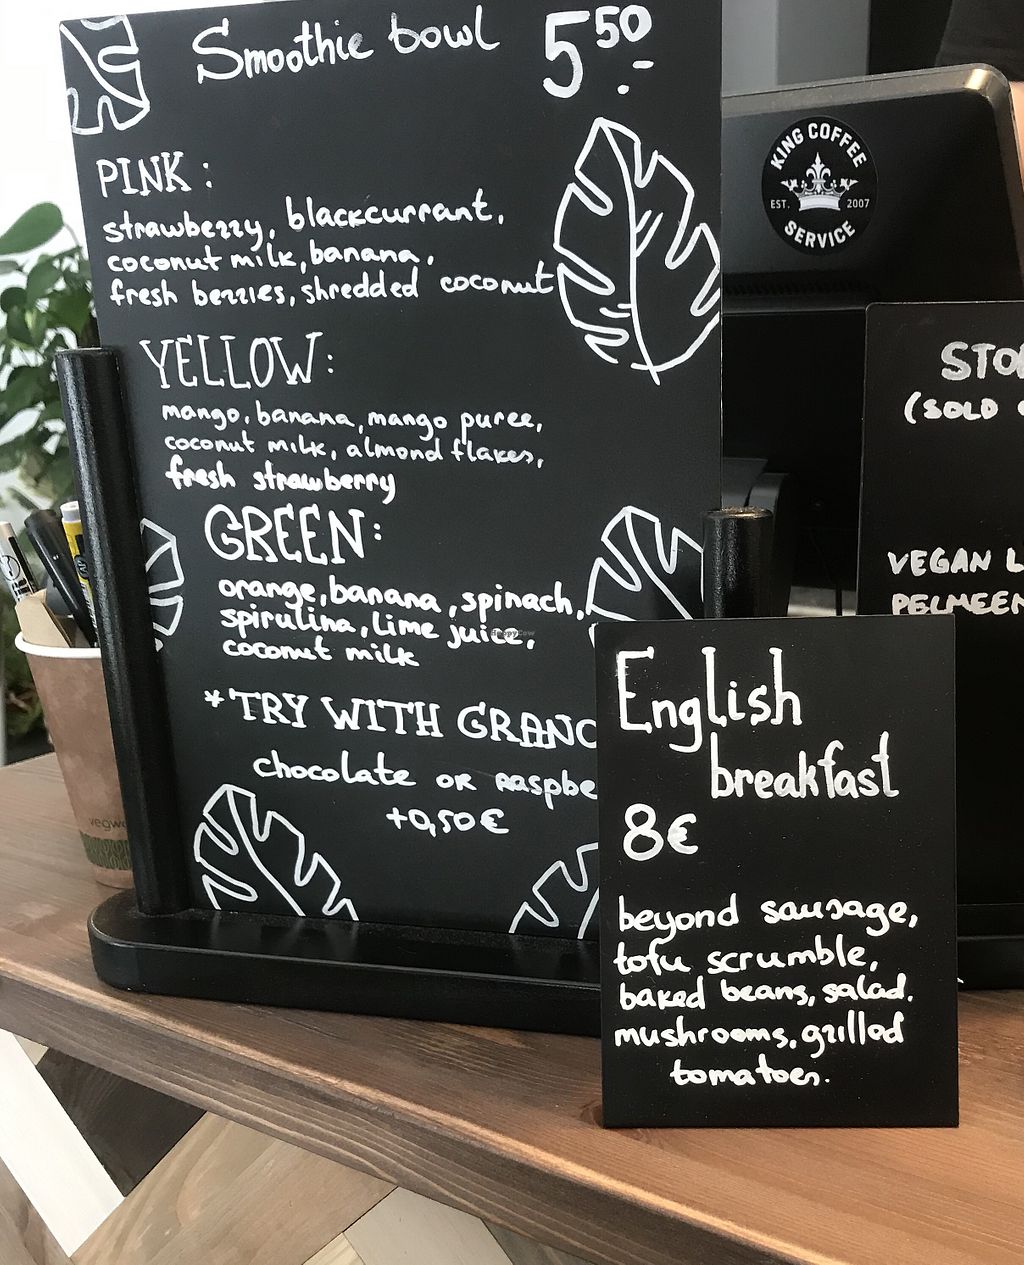 Smoothie bowl 5.50.-
PINK:
strawberry, blackcurrant,
coconut milk, banana,
fresh berries, shredded coconut
YELLOW:
mango, banana, mango puree,
coconut milk, almond flakes,
fresh strawberry
GREEN:
orange, banana, spinach,
spirulina, lime juice,
coconut milk
*TRY WITH
chocolate OR
+0,50€
KING COFFEE
EST. 2007
SERVICE
(SOLD
VEGAN
English
breakfast
8€
beyond sausage,
tofu scrumble,
baked beans, salad.
mushrooms, grilled
tomatoes.
HappyCow